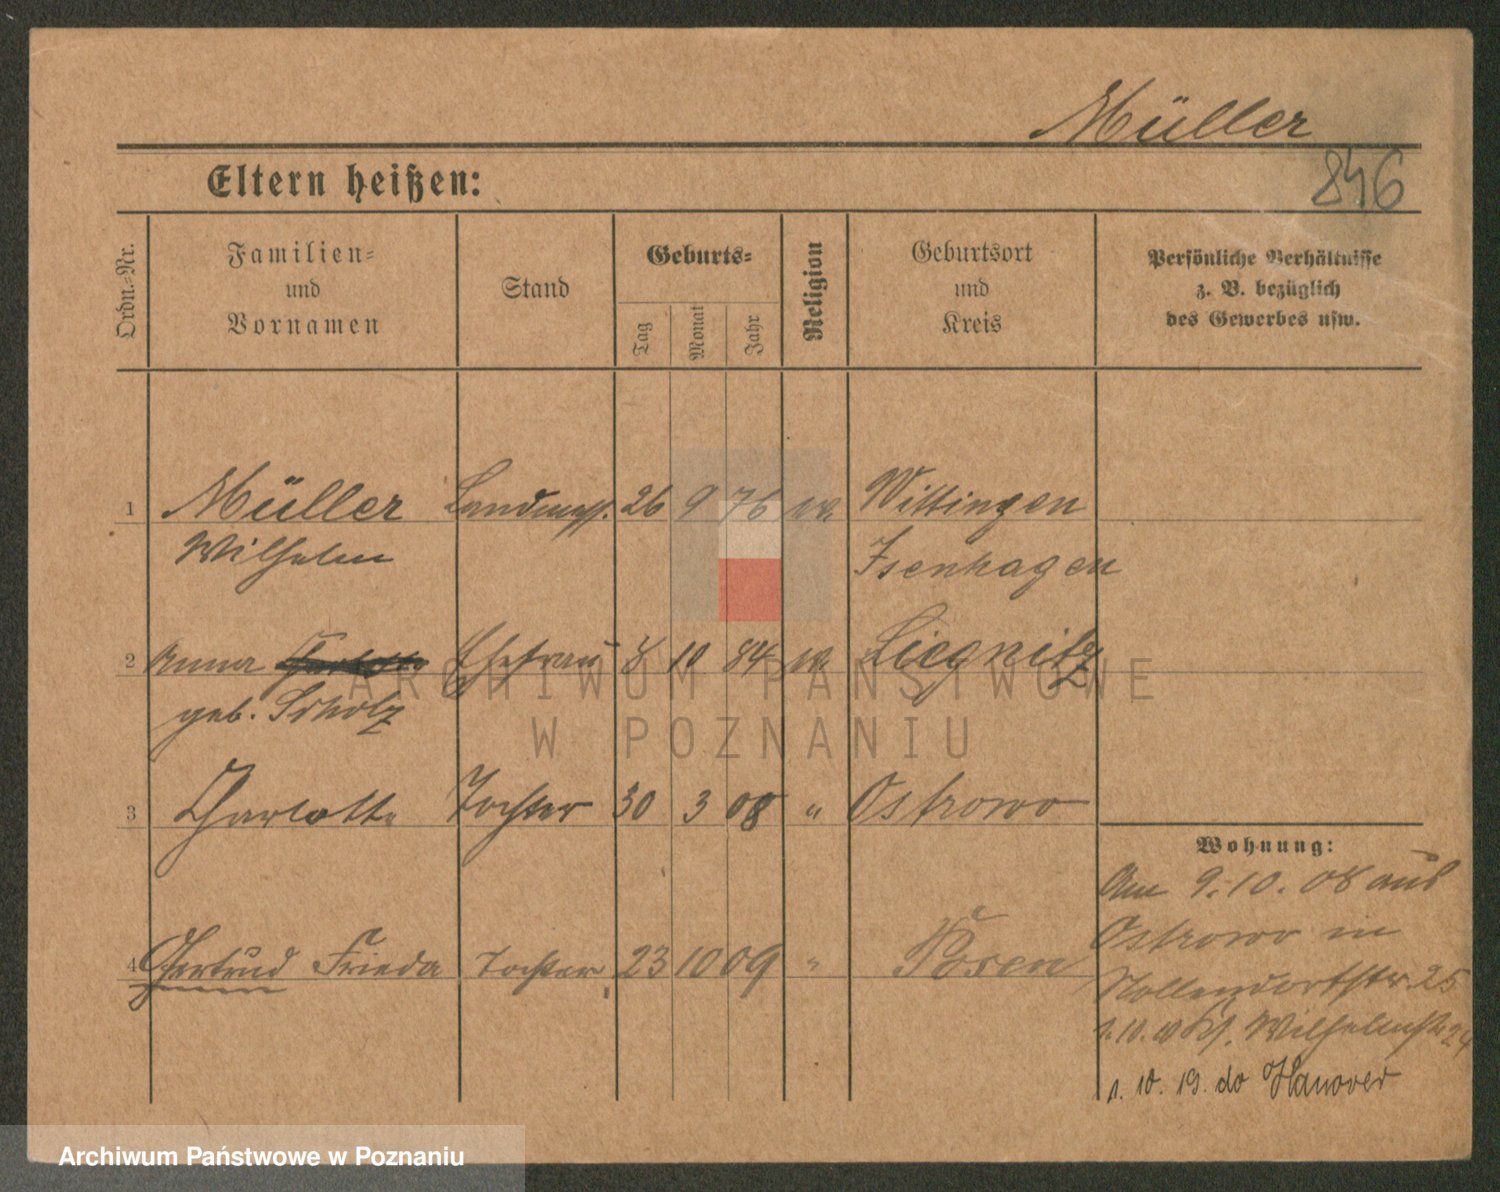 Müller
846
Eltern heißen:
Ordn.-Nr.
Familien-
und
Vornamen
Stand
Geburts-
Tag
Monat
Jahr
Religion
Geburtsort
und
Kreis
Persönliche Verhältnisse
z. B. bezüglich
des Gewerbes usw.
1 Müller Landmess. 26 9 76 ev. Wittingen
Wilhelm Isenhagen
2 Anna Ehefrau 8 10 84 ev. Liegnitz
geb. Scholz
3 Charlotte Tochter 30 3 08 " Ostrowo
4 Gertrud Frieda Tochter 23 10 09 " Posen
Wohnung:
Am 9.10.08 aus
Ostrowo in
Nollendorfstr. 25
1.10. Wilhelmstr 24
1. 10. 19. do Hanover
ARCHIWUM PAŃSTWOWE
W POZNANIU
Archiwum Państwowe w Poznaniu